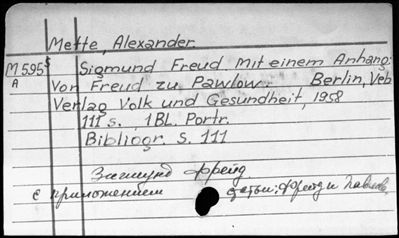 Mette, Alexander.
M595⁵ Sigmund Freud. Mit einem Anhang:
A Von Freud zu Pawlow. Berlin, Veb
Verlag Volk und Gesundheit, 1958
111 s., 1BL. Portr.
Bibliogr. S. 111
Зигмунд Фрейд
с приложением Фрейд и Павлов